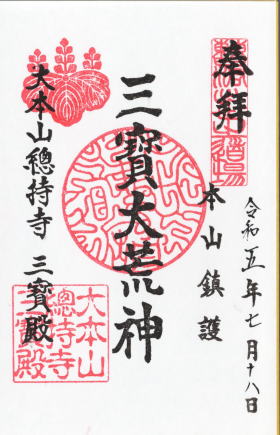 奉拜
令和五年七月十八日
本山鎮護
三寶大荒神
大本山總持寺 三寳殿
大本山
總持寺
三寳殿